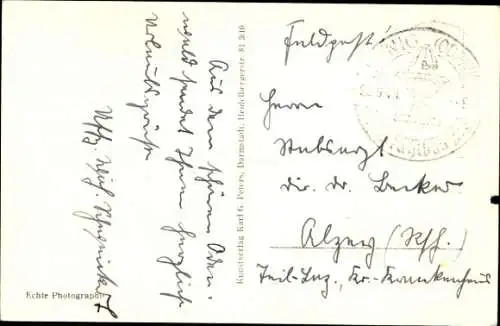 Aus dem schönen Oden-
wald sendet Ihnen herzliche
Urlaubsgrüße
Uffz.
Echte Photographie
Kunstverlag Karl G. Peters, Darmstadt, Heidelbergerstr. 81 3/10
Feldpost!
Herrn
Stabsarzt
Dir. Dr. Becker
Alzey (Rhh.)
Teil-Laz., Kr.-Krankenhaus